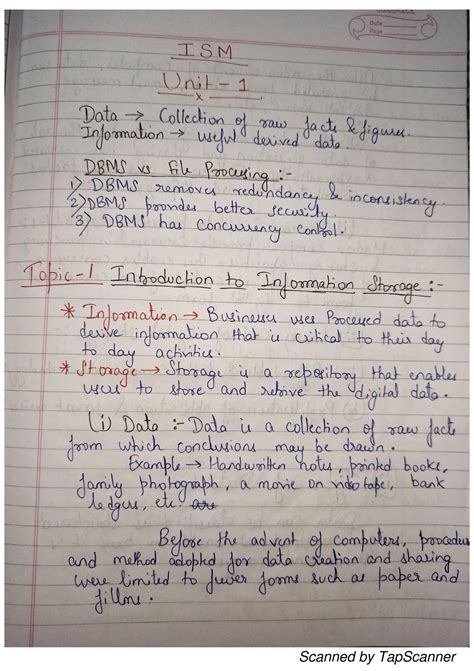 Date
Page
ISM
Unit - 1
x
Data → Collection of raw facts & figures.
Information → useful derived data
DBMS vs File Processing :-
1) DBMS removes redundancy & inconsistency.
2) DBMS provides better security.
3) DBMS has Concurrency control.
Topic-1 Introduction to Information Storage :-
* Information → Businesses uses Processed data to
derive information that is critical to their day
to day activities.
* Storage → Storage is a repository that enables
users to store and retrive the digital data.
(i) Data :- Data is a collection of raw facts
from which conclusions may be drawn.
Example → Handwritten notes, printed books,
family photograph, a movie on video tape, bank
ledgers, etc. are
Before the advent of computers, procedures
and method adopted for data creation and sharing
were limited to fewer forms such as paper and
fillms.
Scanned by TapScanner